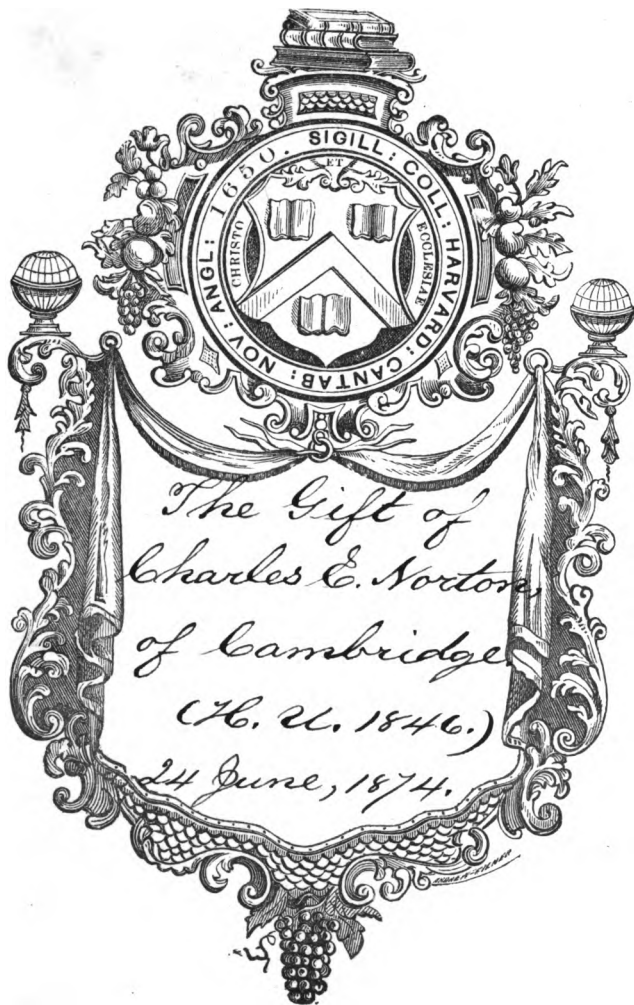 SIGILL: COLL: HARVARD: CANTAB: NOV: ANGL: 1650.
CHRISTO ET ECCLESIAE
The Gift of
Charles E. Norton,
of Cambridge
(H. U. 1846.)
24 June, 1874.